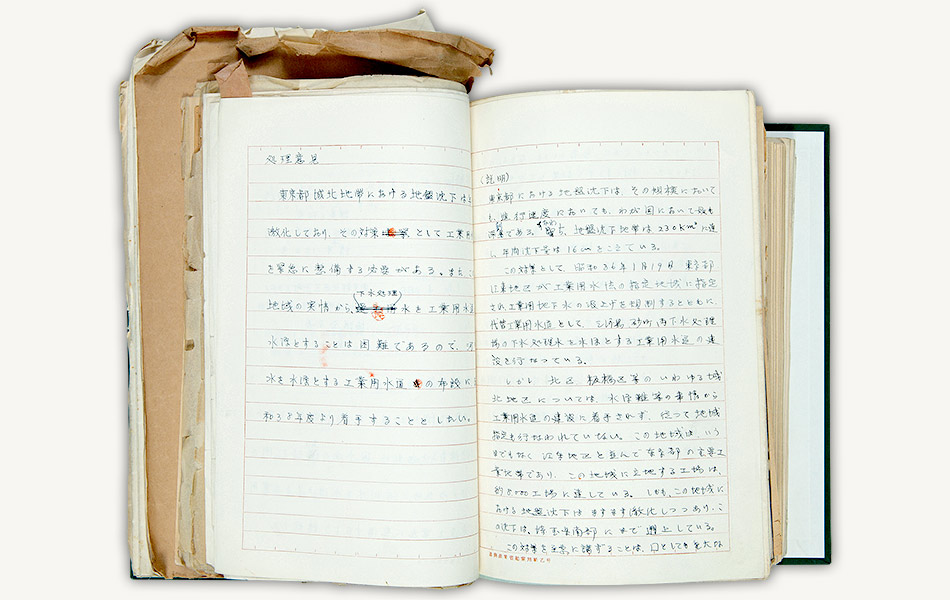 処理意見
東京都城北地帯における地盤沈下は
激化しており、その対策として工業用
を緊急に整備する必要がある。また、こ
下水処理
地域の実情から、水を工業用水道
水源とすることは困難であるので、
水を水源とする工業用水道の布設に
和38年度より着手することとしたい。
(説明)
東京都における地盤沈下は、その規模において
も、進行速度においても、わが国において最も
である。地盤沈下地帯は230km²に達
し、年間沈下量は16cmとこえている。
この対策として、昭和36年1月19日東京都
江東地区が工業用水法の指定地域に指定
され工業用地下水の汲上げを規制するとともに、
代替工業用水道として、三河島、砂町両下水処理
場の下水処理水を水源とする工業用水道の建
設を行なつている。
しかし、北区、板橋区等のいわゆる城
北地区については、水源難等の事情から
工業用水道の建設に着手されず、従つて地域
指定も行なわれていない。この地域は、いう
までもなく江東地区と並んで東京都の主要工
業地帯であり、この地域に立地する工場は、
約5,000工場に達している。しかも、この地域に
おける地盤沈下はますます激化しつつあり、こ
の沈下は、埼玉県南部にまで遡上している。
この対策を早急に講ずることは、国としても重大な